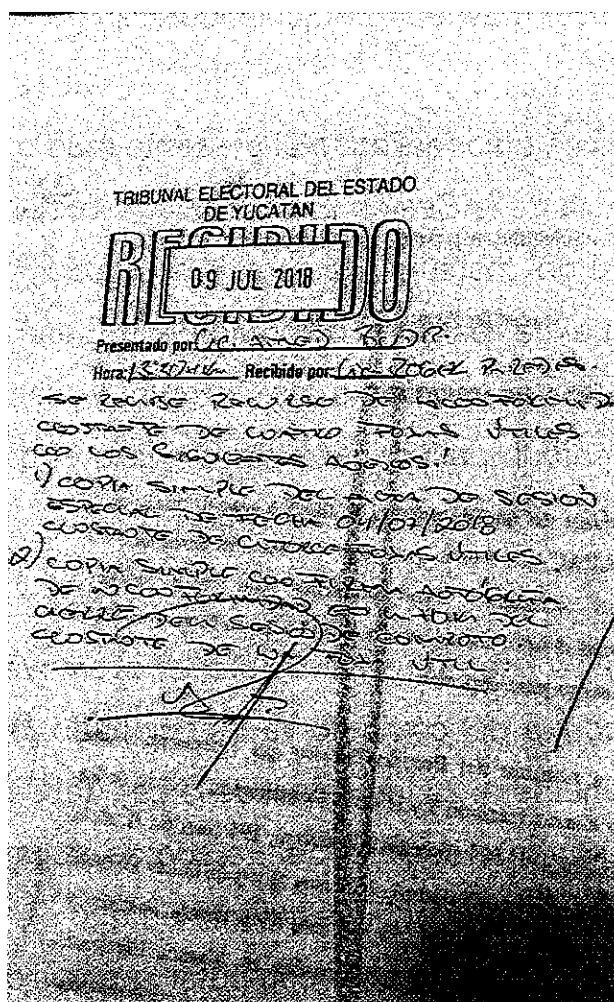 TRIBUNAL ELECTORAL DEL ESTADO
DE YUCATAN
RECIBIDO
09 JUL 2018
Presentado por:
Hora: Recibido por: ROGER PAREDES.
SE RECIBE RECURSO DE INCONFORMIDAD
CONSTANTE DE CUATRO FOJAS UTILES
CON LOS SIGUIENTES ANEXOS:
1) COPIA SIMPLE DEL ACTA DE SESIÓN
ESPECIAL DE FECHA 04/07/2018
CONSTANTE DE CATORCE FOJAS UTILES.
2) COPIA SIMPLE CON FIRMA AUTÓGRAFA
DE INCONFORMIDAD EN DEL
DE COMPUTO
CONSTANTE DE UNA FOJA UTIL.